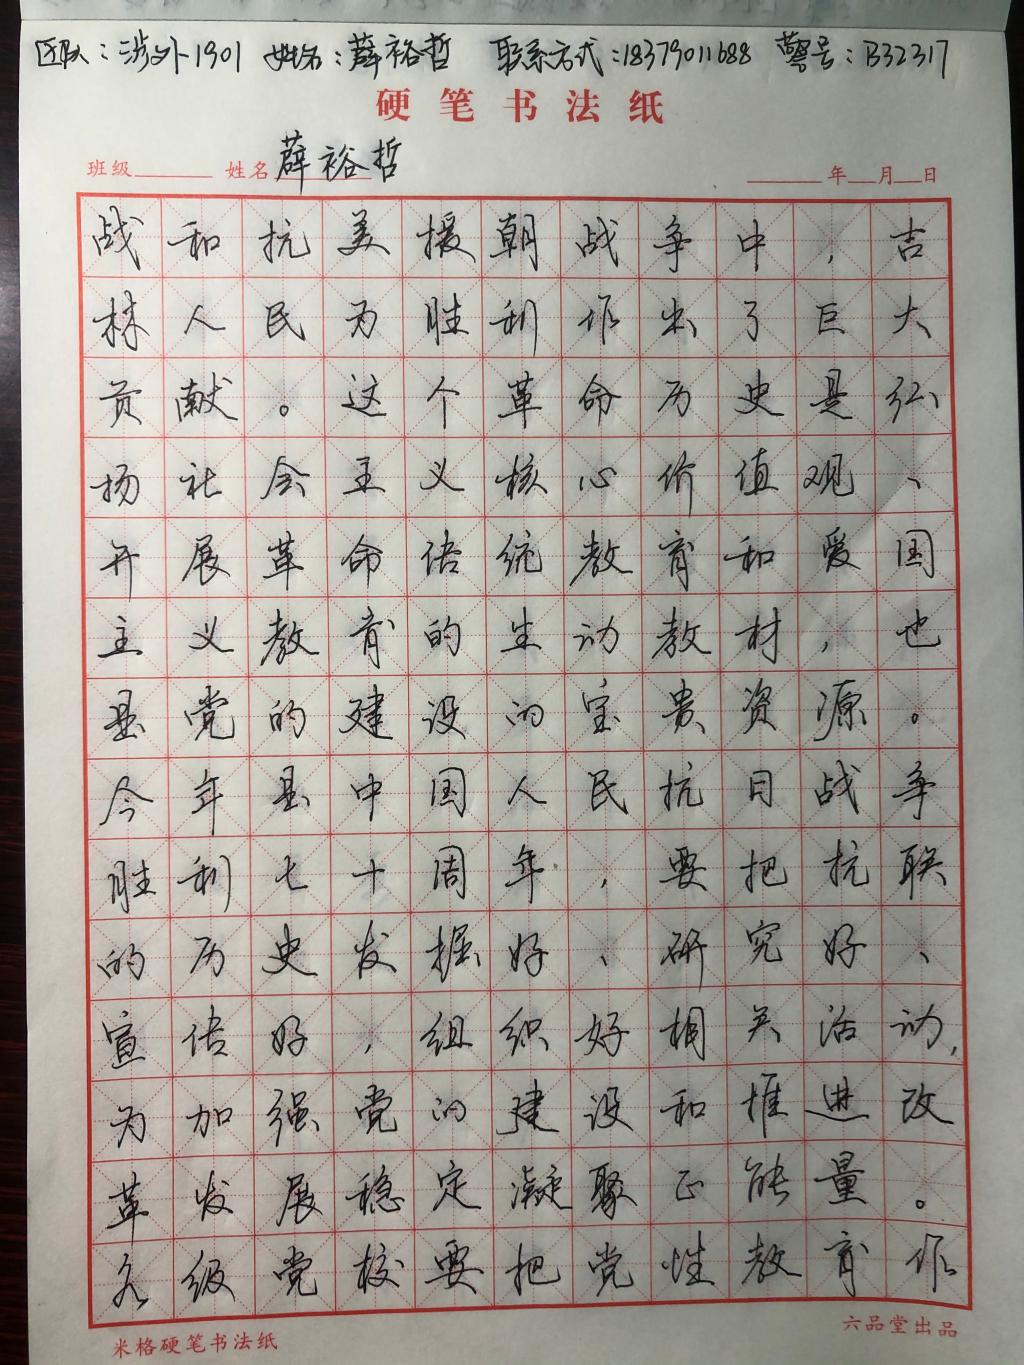 团队：涉外1901 姓名：薛裕哲 联系方式：18379011688 警号：B32317
硬笔书法纸
班级 姓名 薛裕哲 年 月 日
战和抗美援朝战争中，吉
林人民为胜利作出了巨大
贡献。这个革命历史是弘
扬社会主义核心价值观、
开展革命传统教育和爱国
主义教育的生动教材，也
是党的建设的宝贵资源。
今年是中国人民抗日战争
胜利七十周年，要把抗联
的历史发掘好、研究好、
宣传好，组织好相关活动，
为加强党的建设和推进改
革发展稳定凝聚正能量。
各级党校要把党性教育作
米格硬笔书法纸 六品堂出品